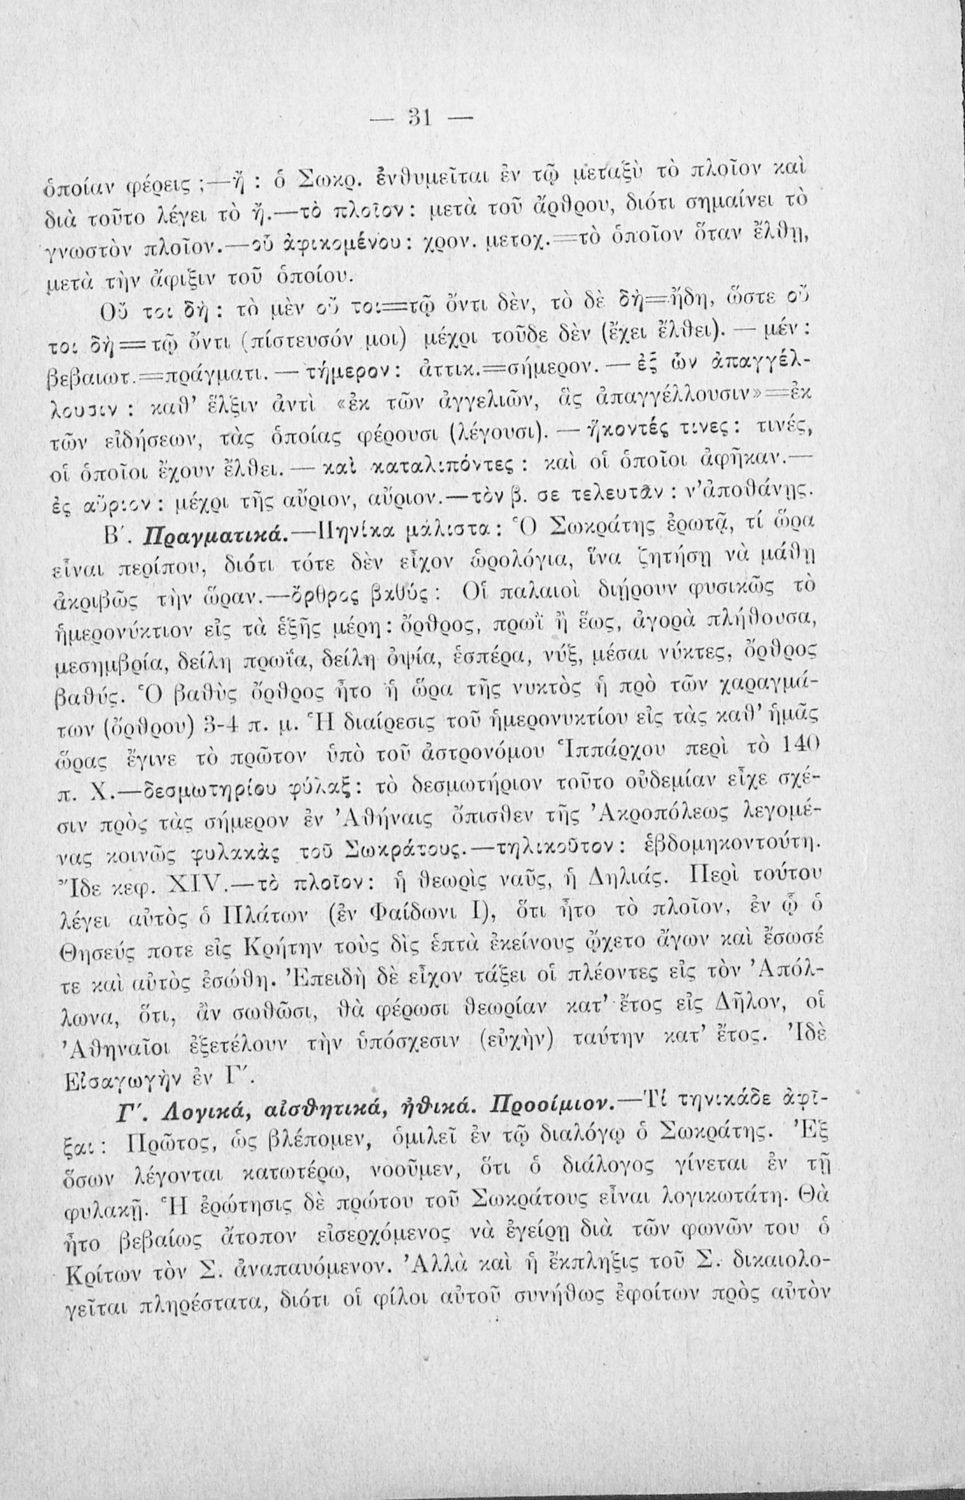 — 31 —
ὁποίαν φέρεις ;—ἤ : ὁ Σωκρ. ἐνθυμεῖται ἐν τῷ μεταξὺ τὸ πλοῖον καὶ
διὰ τοῦτο λέγει τὸ ἤ.—τὸ πλοῖον : μετὰ τοῦ ἄρθρου, διότι σημαίνει τὸ
γνωστὸν πλοῖον.—οὗ ἀφικομένου : χρον. μετοχ.=τὸ ὁποῖον ὅταν ἔλθῃ,
μετὰ τὴν ἄφιξιν τοῦ ὁποίου.
Οὔ τοι δὴ : τὸ μὲν οὔ τοι=τῷ ὄντι δὲν, τὸ δὲ δὴ=ἤδη, ὥστε οὔ
τοι δὴ=τῷ ὄντι (πίστευσόν μοι) μέχρι τοῦδε δὲν (ἔχει ἔλθει). — μέν :
βεβαιωτ.=πράγματι. — τήμερον : ἀττικ.=σήμερον. — ἐξ ὧν ἀπαγγέλ-
λουσιν : καθ' ἕλξιν ἀντὶ «ἐκ τῶν ἀγγελιῶν, ἃς ἀπαγγέλλουσιν»=ἐκ
τῶν εἰδήσεων, τὰς ὁποίας φέρουσι (λέγουσι). — ἥκοντές τινες : τινές,
οἱ ὁποῖοι ἔχουν ἔλθει. — καὶ καταλιπόντες : καὶ οἱ ὁποῖοι ἀφῆκαν.—
ἐς αὔριον : μέχρι τῆς αὔριον, αὔριον.—τὸν β. σε τελευτᾶν : ν' ἀποθάνῃς.
Β'. Πραγματικά.—Πηνίκα μάλιστα : Ὁ Σωκράτης ἐρωτᾷ, τί ὥρα
εἶναι περίπου, διότι τότε δὲν εἶχον ὡρολόγια, ἵνα ζητήσῃ νὰ μάθῃ
ἀκριβῶς τὴν ὥραν.—ὄρθρος βαθύς : Οἱ παλαιοὶ διῄρουν φυσικῶς τὸ
ἡμερονύκτιον εἰς τὰ ἑξῆς μέρη : ὄρθρος, πρωῒ ἢ ἕως, ἀγορὰ πλήθουσα,
μεσημβρία, δείλη πρωΐα, δείλη ὀψία, ἑσπέρα, νύξ, μέσαι νύκτες, ὄρθρος
βαθύς. Ὁ βαθὺς ὄρθρος ἦτο ἡ ὥρα τῆς νυκτὸς ἡ πρὸ τῶν χαραγμά-
των (ὄρθρου) 3-4 π. μ. Ἡ διαίρεσις τοῦ ἡμερονυκτίου εἰς τὰς καθ' ἡμᾶς
ὥρας ἔγινε τὸ πρῶτον ὑπὸ τοῦ ἀστρονόμου Ἱππάρχου περὶ τὸ 140
π. Χ.—δεσμωτηρίου φύλαξ : τὸ δεσμωτήριον τοῦτο οὐδεμίαν εἶχε σχέ-
σιν πρὸς τὰς σήμερον ἐν Ἀθήναις ὄπισθεν τῆς Ἀκροπόλεως λεγομέ-
νας κοινῶς φυλακὰς τοῦ Σωκράτους.—τηλικοῦτον : ἑβδομηκοντούτη.
Ἴδε κεφ. XIV.—τὸ πλοῖον : ἡ θεωρὶς ναῦς, ἡ Δηλιάς. Περὶ τούτου
λέγει αὐτὸς ὁ Πλάτων (ἐν Φαίδωνι Ι), ὅτι ἦτο τὸ πλοῖον, ἐν ᾧ ὁ
Θησεύς ποτε εἰς Κρήτην τοὺς δὶς ἑπτὰ ἐκείνους ᾤχετο ἄγων καὶ ἔσωσέ
τε καὶ αὐτὸς ἐσώθη. Ἐπειδὴ δὲ εἶχον τάξει οἱ πλέοντες εἰς τὸν Ἀπόλ-
λωνα, ὅτι, ἂν σωθῶσι, θὰ φέρωσι θεωρίαν κατ' ἔτος εἰς Δῆλον, οἱ
Ἀθηναῖοι ἐξετέλουν τὴν ὑπόσχεσιν (εὐχὴν) ταύτην κατ' ἔτος. Ἰδὲ
Εἰσαγωγὴν ἐν Γ'.
Γ'. Λογικά, αἰσθητικά, ἠθικά. Προοίμιον.—Τί τηνικάδε ἀφῖ-
ξαι : Πρῶτος, ὡς βλέπομεν, ὁμιλεῖ ἐν τῷ διαλόγῳ ὁ Σωκράτης. Ἐξ
ὅσων λέγονται κατωτέρω, νοοῦμεν, ὅτι ὁ διάλογος γίνεται ἐν τῇ
φυλακῇ. Ἡ ἐρώτησις δὲ πρώτου τοῦ Σωκράτους εἶναι λογικωτάτη. Θὰ
ἦτο βεβαίως ἄτοπον εἰσερχόμενος νὰ ἐγείρῃ διὰ τῶν φωνῶν του ὁ
Κρίτων τὸν Σ. ἀναπαυόμενον. Ἀλλὰ καὶ ἡ ἔκπληξις τοῦ Σ. δικαιολο-
γεῖται πληρέστατα, διότι οἱ φίλοι αὐτοῦ συνήθως ἐφοίτων πρὸς αὐτὸν